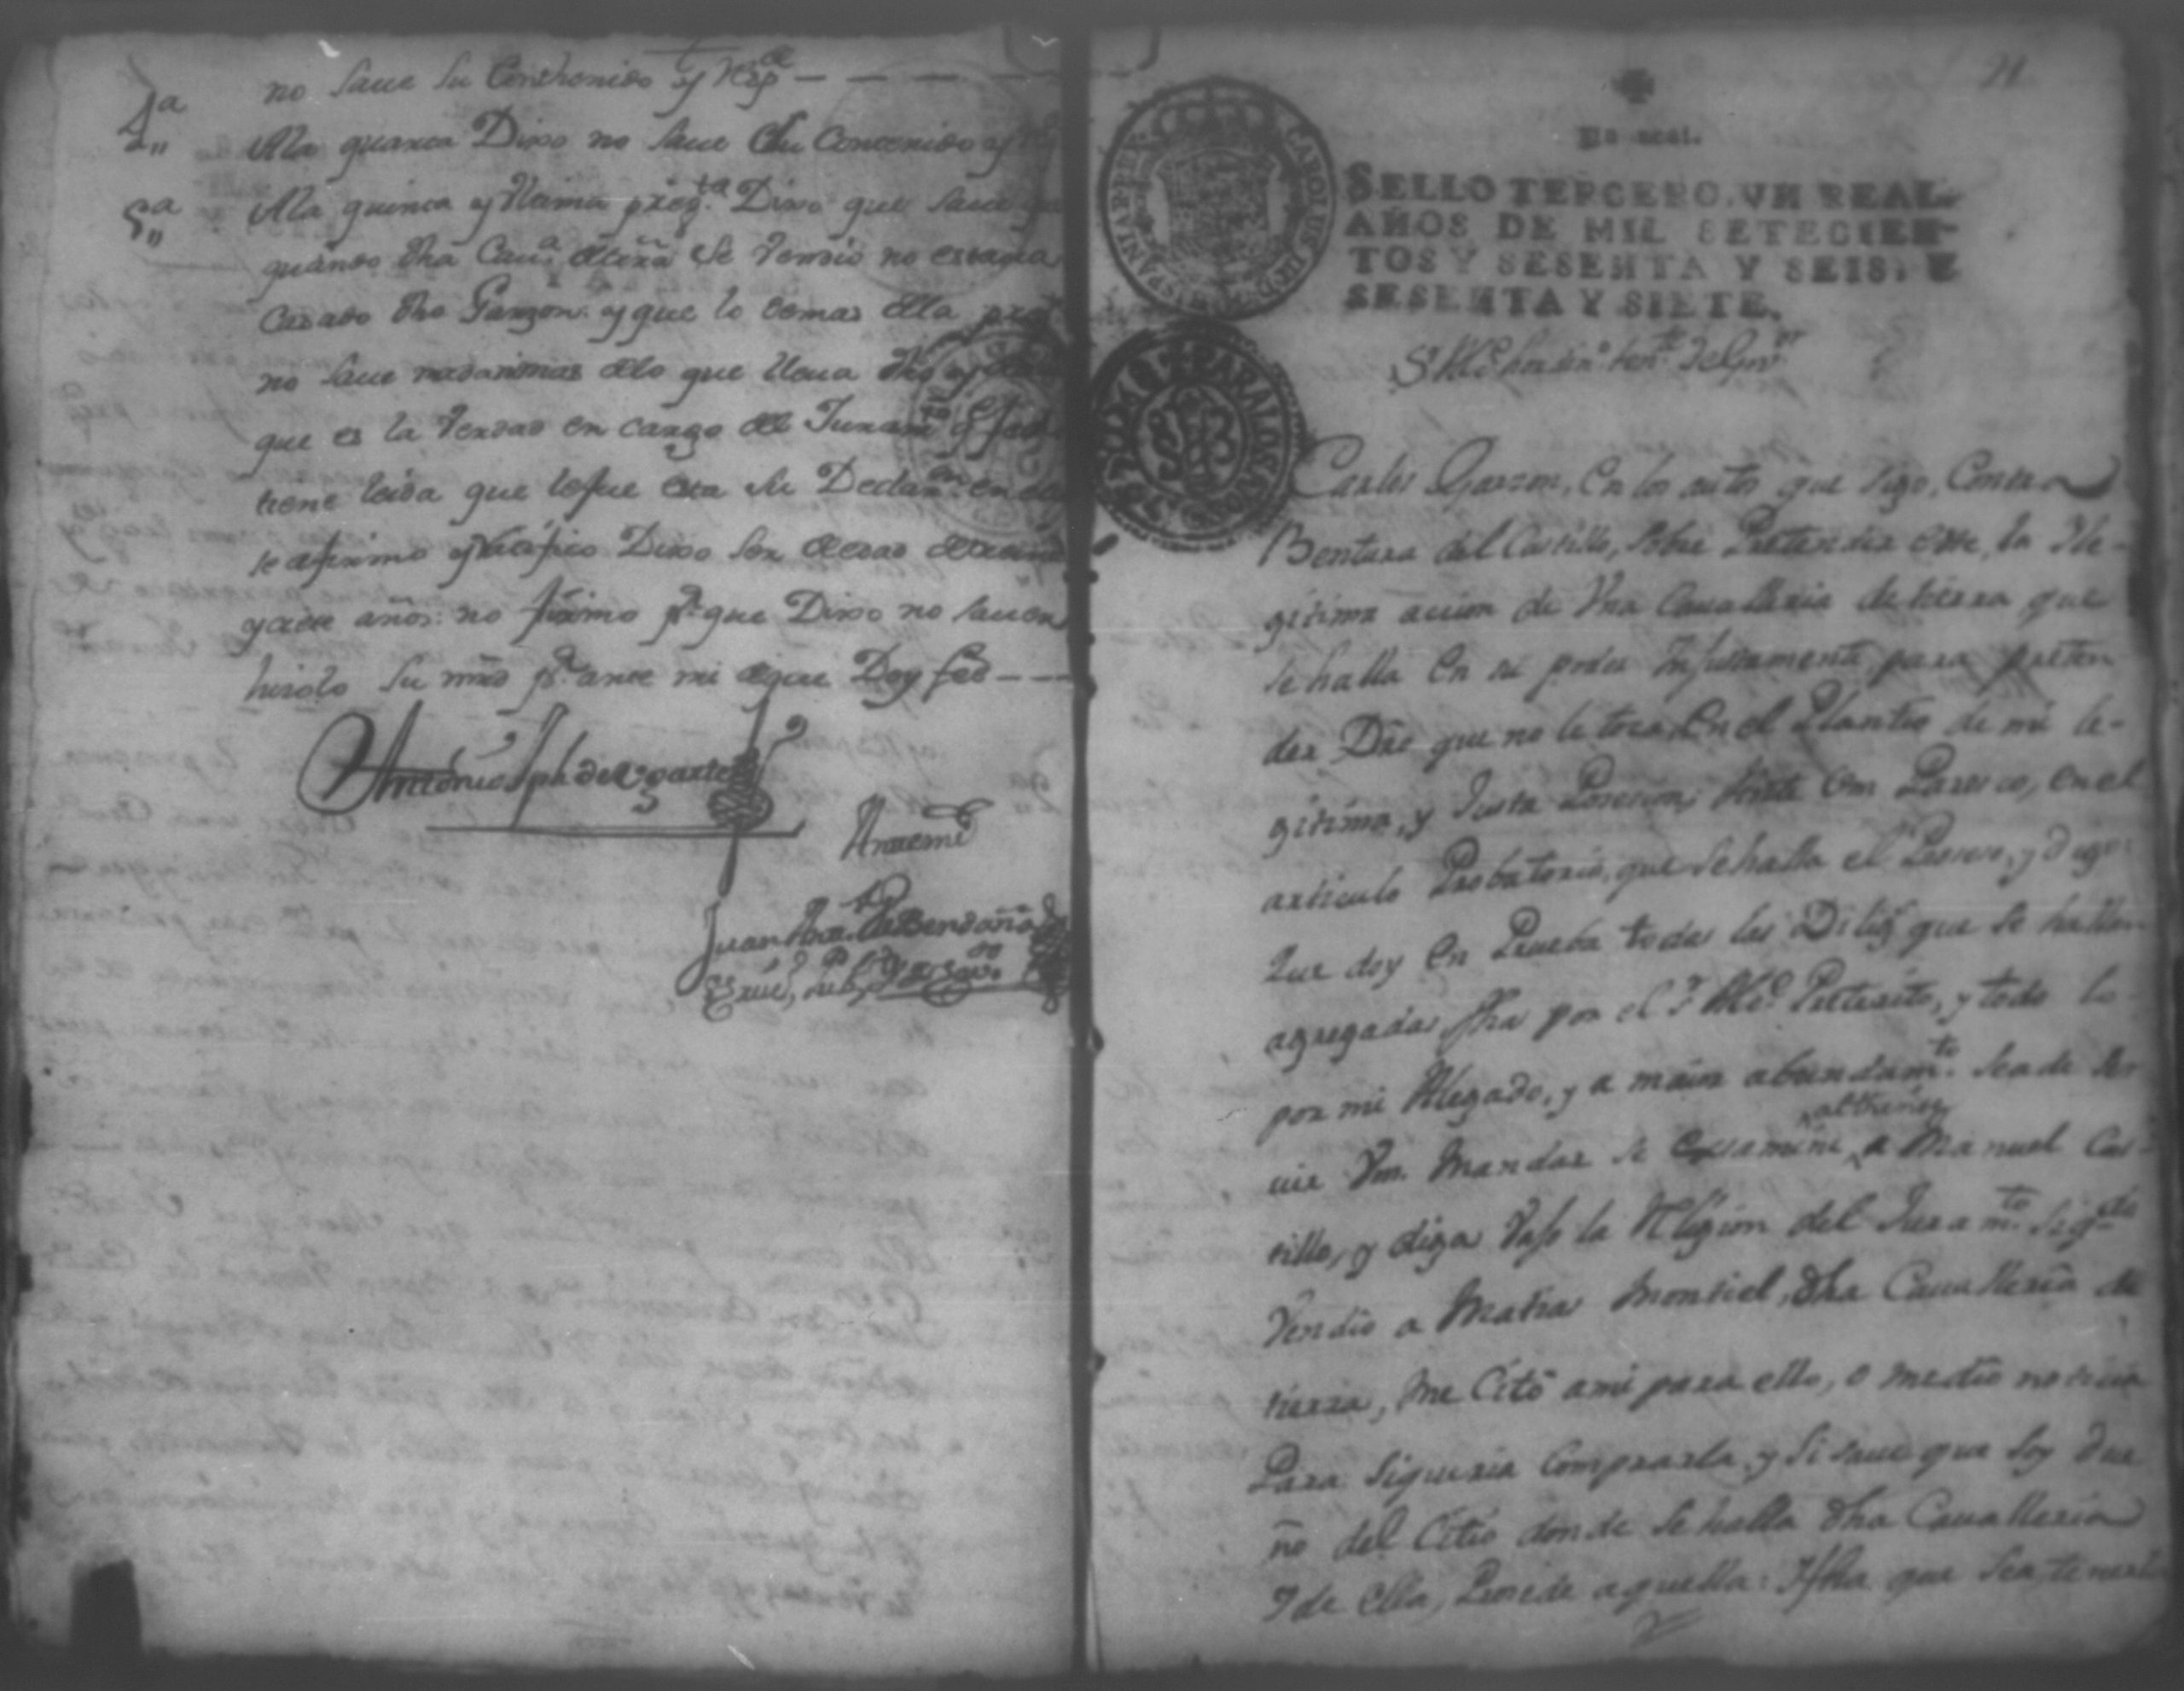 no saue su Conthenido y resp.de
4.a
Ala quarta Dixo no saue su Contenido y
5.a
Ala quinta y Vltima preg.ta Dixo que saue
quando dha Cau.a de tierra se Vendio no estaua
Casado dho Garzon. y que lo demas de la preg
no saue nada mas de lo que lleua dho y
que es la Verdad en cargo del Juram.to q fecho
tiene leida que le fue esta su Declaraz.on en ella
se afirmo y Ratifico Dixo ser de edad de
y años: no firmo p.r que Dixo no sauer
hizolo su mrd p.r ante mi de que Doy fee
Antonio Jph de Ugarte
Antemi
Juan Ant.o de Bendaña
Esriu.o pub.co
21
Vn real.
SELLO TERCERO, VN REAL,
AÑOS DE MIL SETECIEN-
TOS Y SESENTA Y SEIS, Y
SESENTA Y SIETE.
CAROLUS III D G HISPANIAR REX
PARA LOS AÑOS
Carlos Garzon, en los autos que sigo, Contra
Bentura del Castillo, sobre Pretender este, la Yle-
gitima accion de Vna Cauallaria de tierra que
se halla en su poder Injustamente para preten
der Dro que no le toca en el Plantio de mi le-
gitima, y Justa Posesion, Ante Vm Paresco, en el
articulo Probatorio, que se halla el Proceso, y digo:
Que doy en Prueba todas las Dilig.s que se hallan
agregadas fha por el S.r Alc.e Preterito, y todo lo
por mi Alegado, y a maior abundam.to sea de ser
uir Vm. Mandar se Exsamine a Manuel Cas-
tillo, y diga Vajo la Religion del Juram.to Sig.do
Vendio a Matias Montiel, dha Cauallería de
tierra, me Citó ami para ello, o me dio noticia
Para si queria Comprarla, y si saue que soy Due
ño del Citio donde se halla dha Cauallería
Y de ella, Prosede aquella: Y fha que sea,